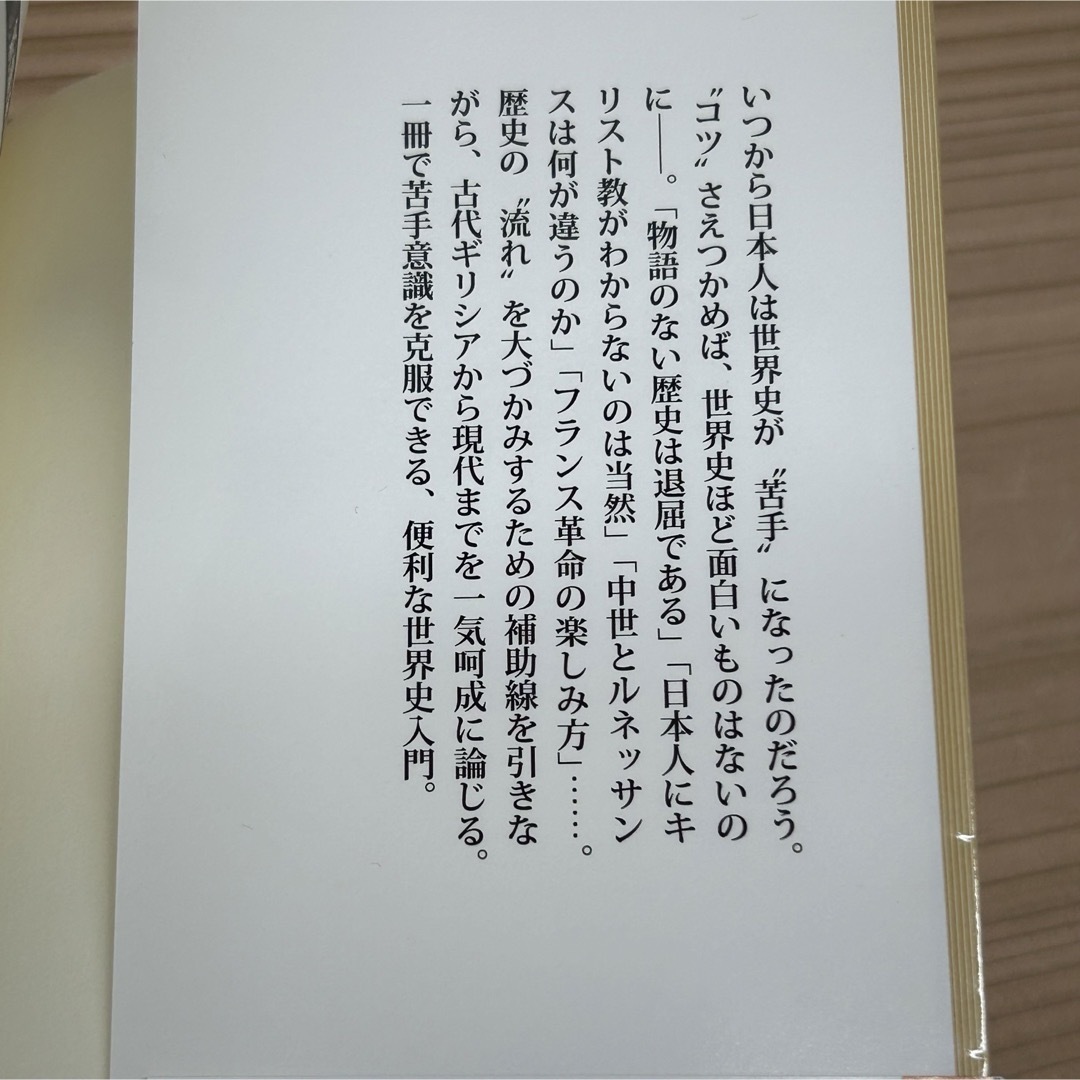 いつから日本人は世界史が〝苦手〟になったのだろう。
〝コツ〟さえつかめば、世界史ほど面白いものはないの
に――。「物語のない歴史は退屈である」「日本人にキ
リスト教がわからないのは当然」「中世とルネッサン
スは何が違うのか」「フランス革命の楽しみ方」……。
歴史の〝流れ〟を大づかみするための補助線を引きな
がら、古代ギリシアから現代までを一気呵成に論じる。
一冊で苦手意識を克服できる、便利な世界史入門。